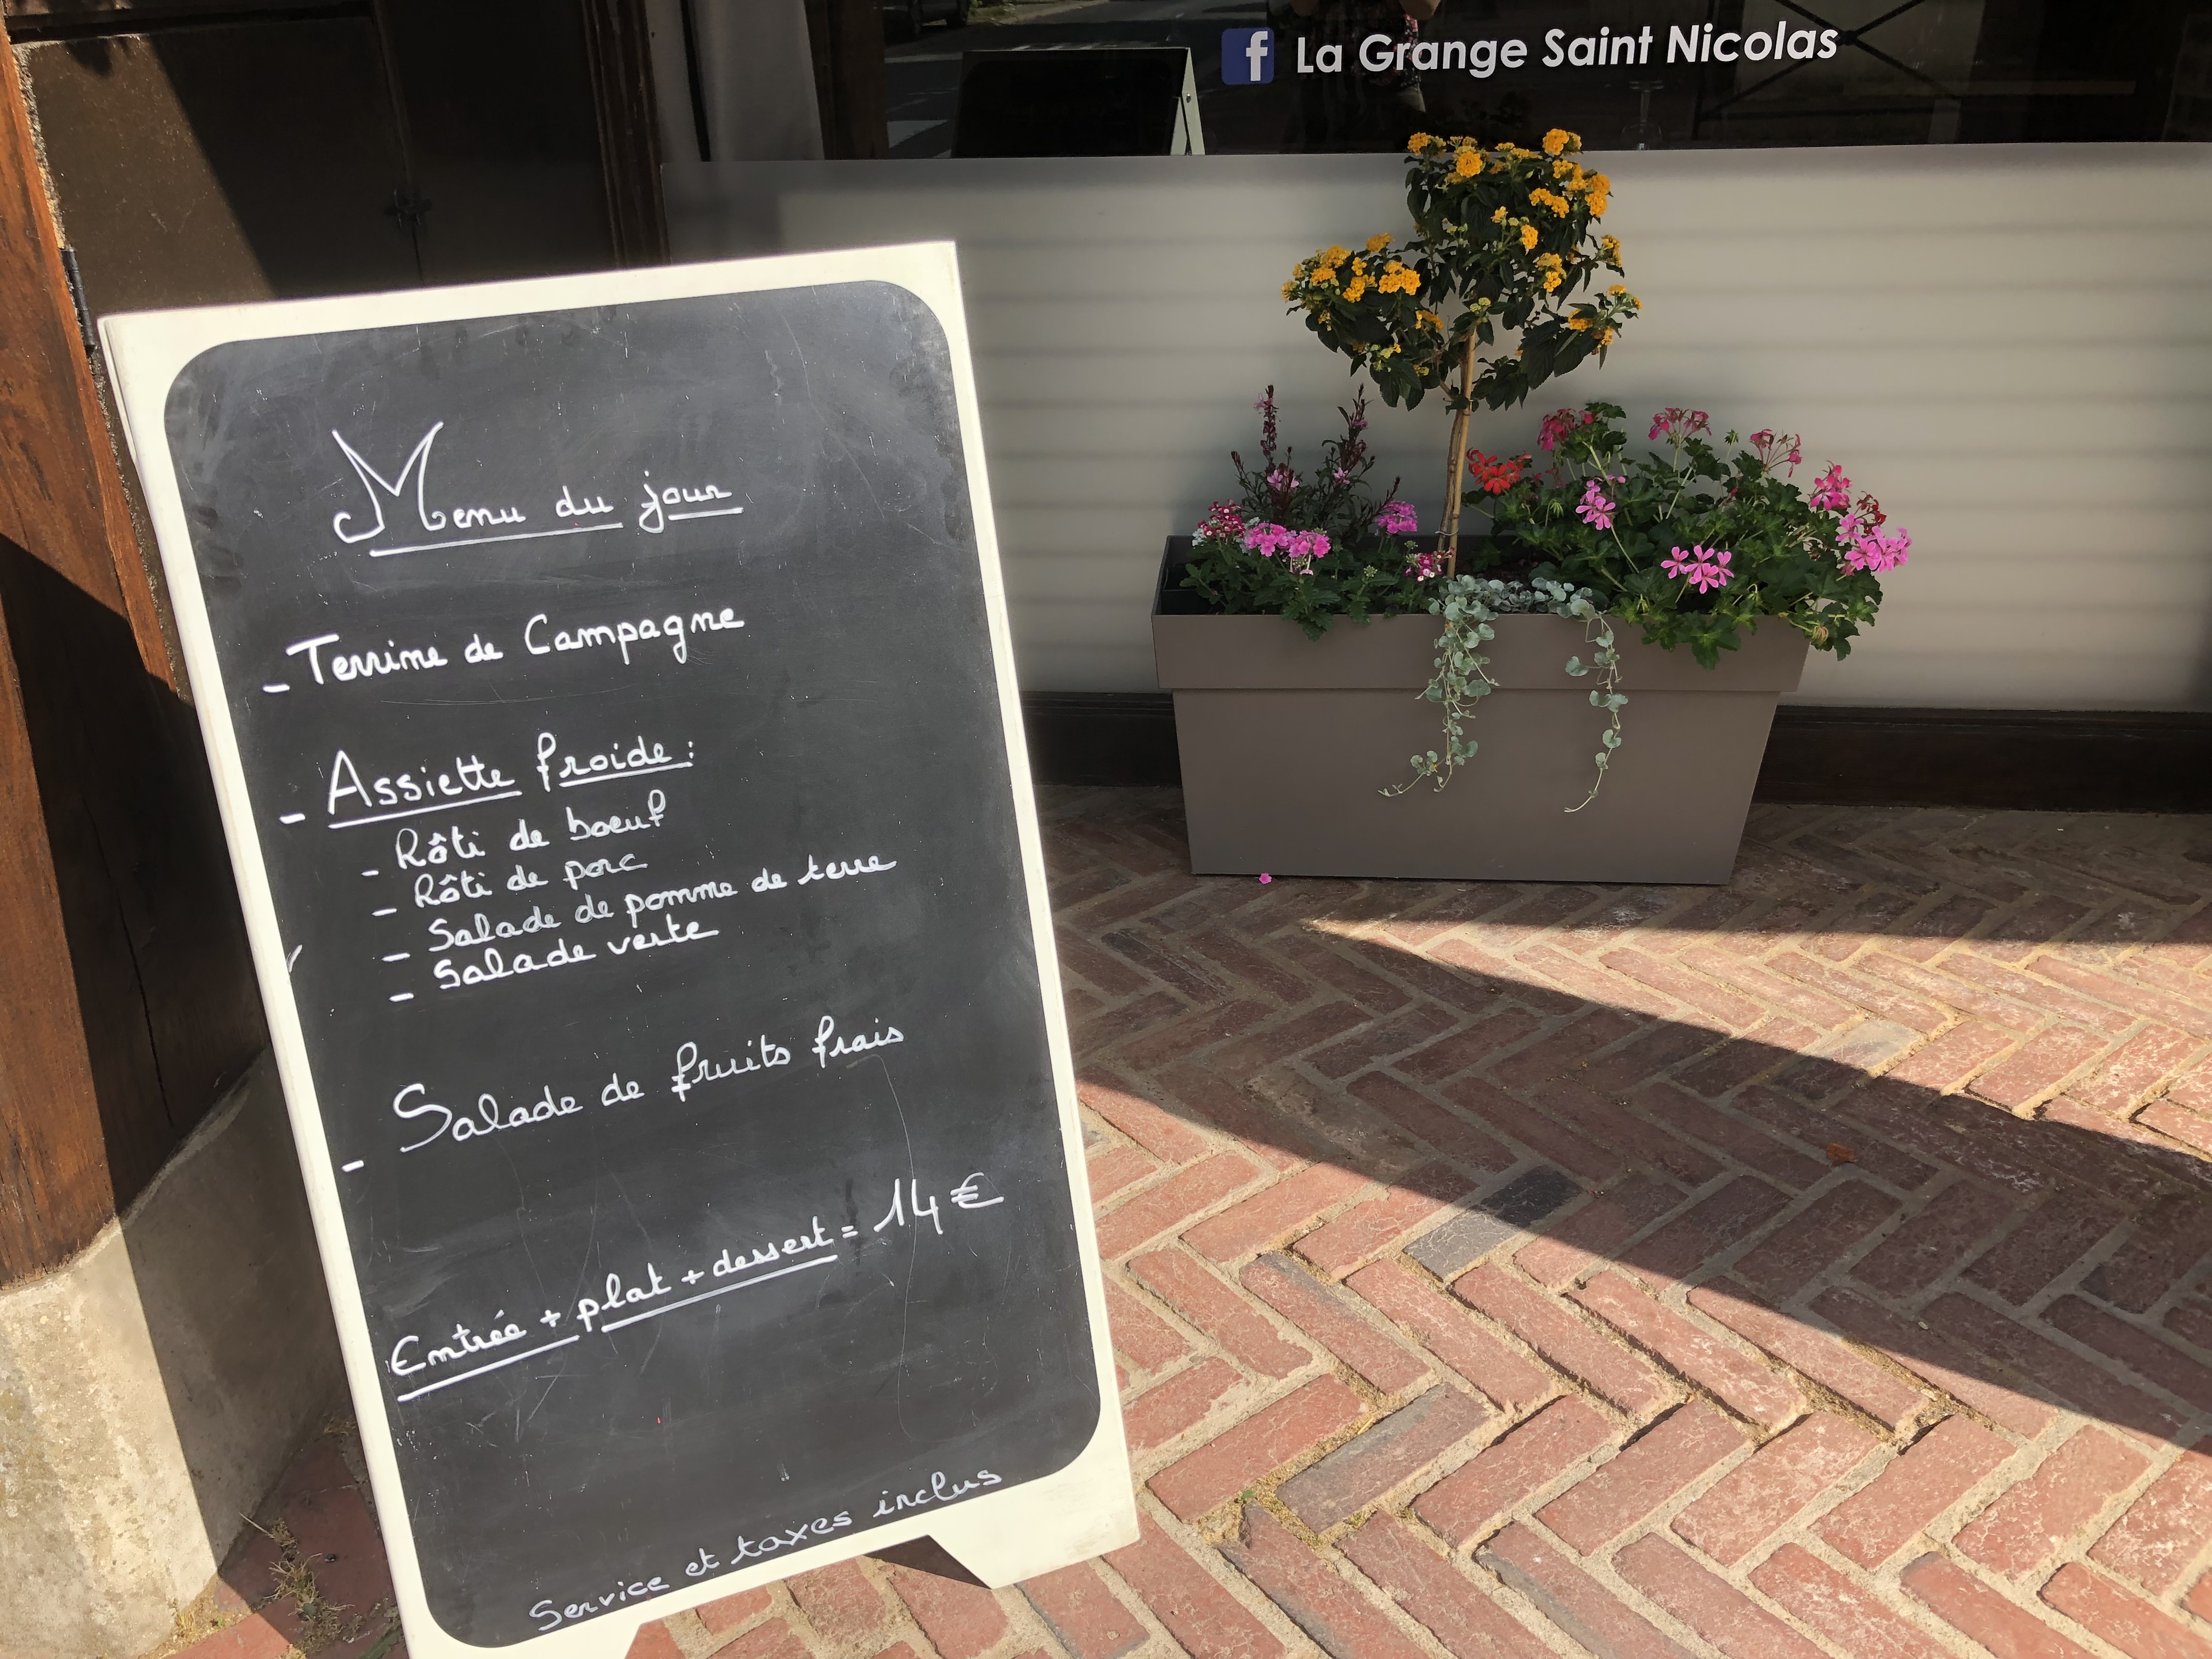 f La Grange Saint Nicolas
Menu du jour
- Terrine de Campagne
- Assiette froide :
- Rôti de boeuf
- Rôti de porc
- Salade de pomme de terre
- Salade verte
- Salade de fruits frais
Entrée + plat + dessert = 14 €
Service et taxes inclus